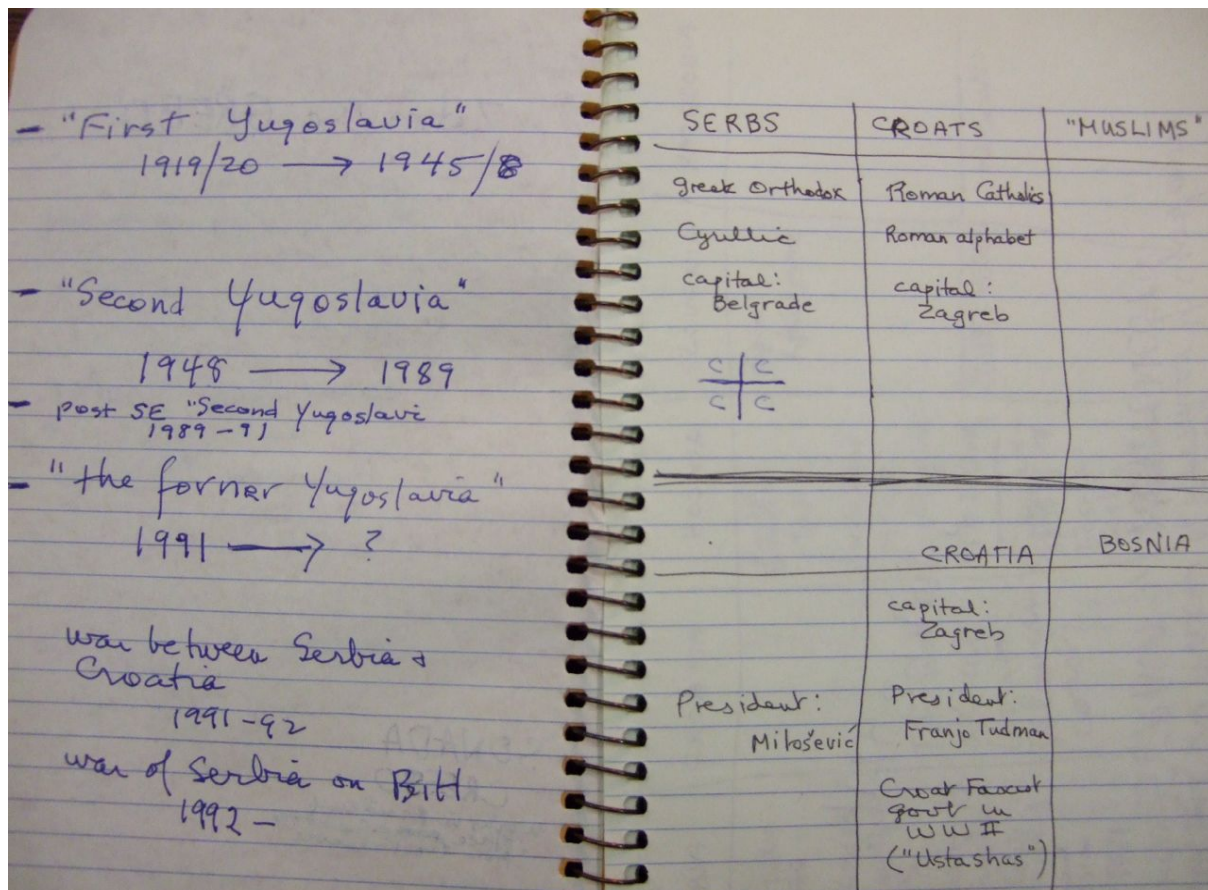 - "First Yugoslavia"
1919/20 → 1945/8
- "Second Yugoslavia"
1948 → 1989
- post SE "Second Yugoslavi
1989-91
- "the former Yugoslavia"
1991 → ?
war between Serbia &
Croatia
1991-92
war of Serbia on BiH
1992-
SERBS CROATS "MUSLIMS"
Greek Orthodox Roman Catholics
Cyrillic Roman alphabet
capital: capital:
Belgrade Zagreb
C C
C C
CROATIA BOSNIA
capital:
Zagreb
President: President:
Milošević Franjo Tudman
Croat Fascist
govt in
WW II
("Ustashas")